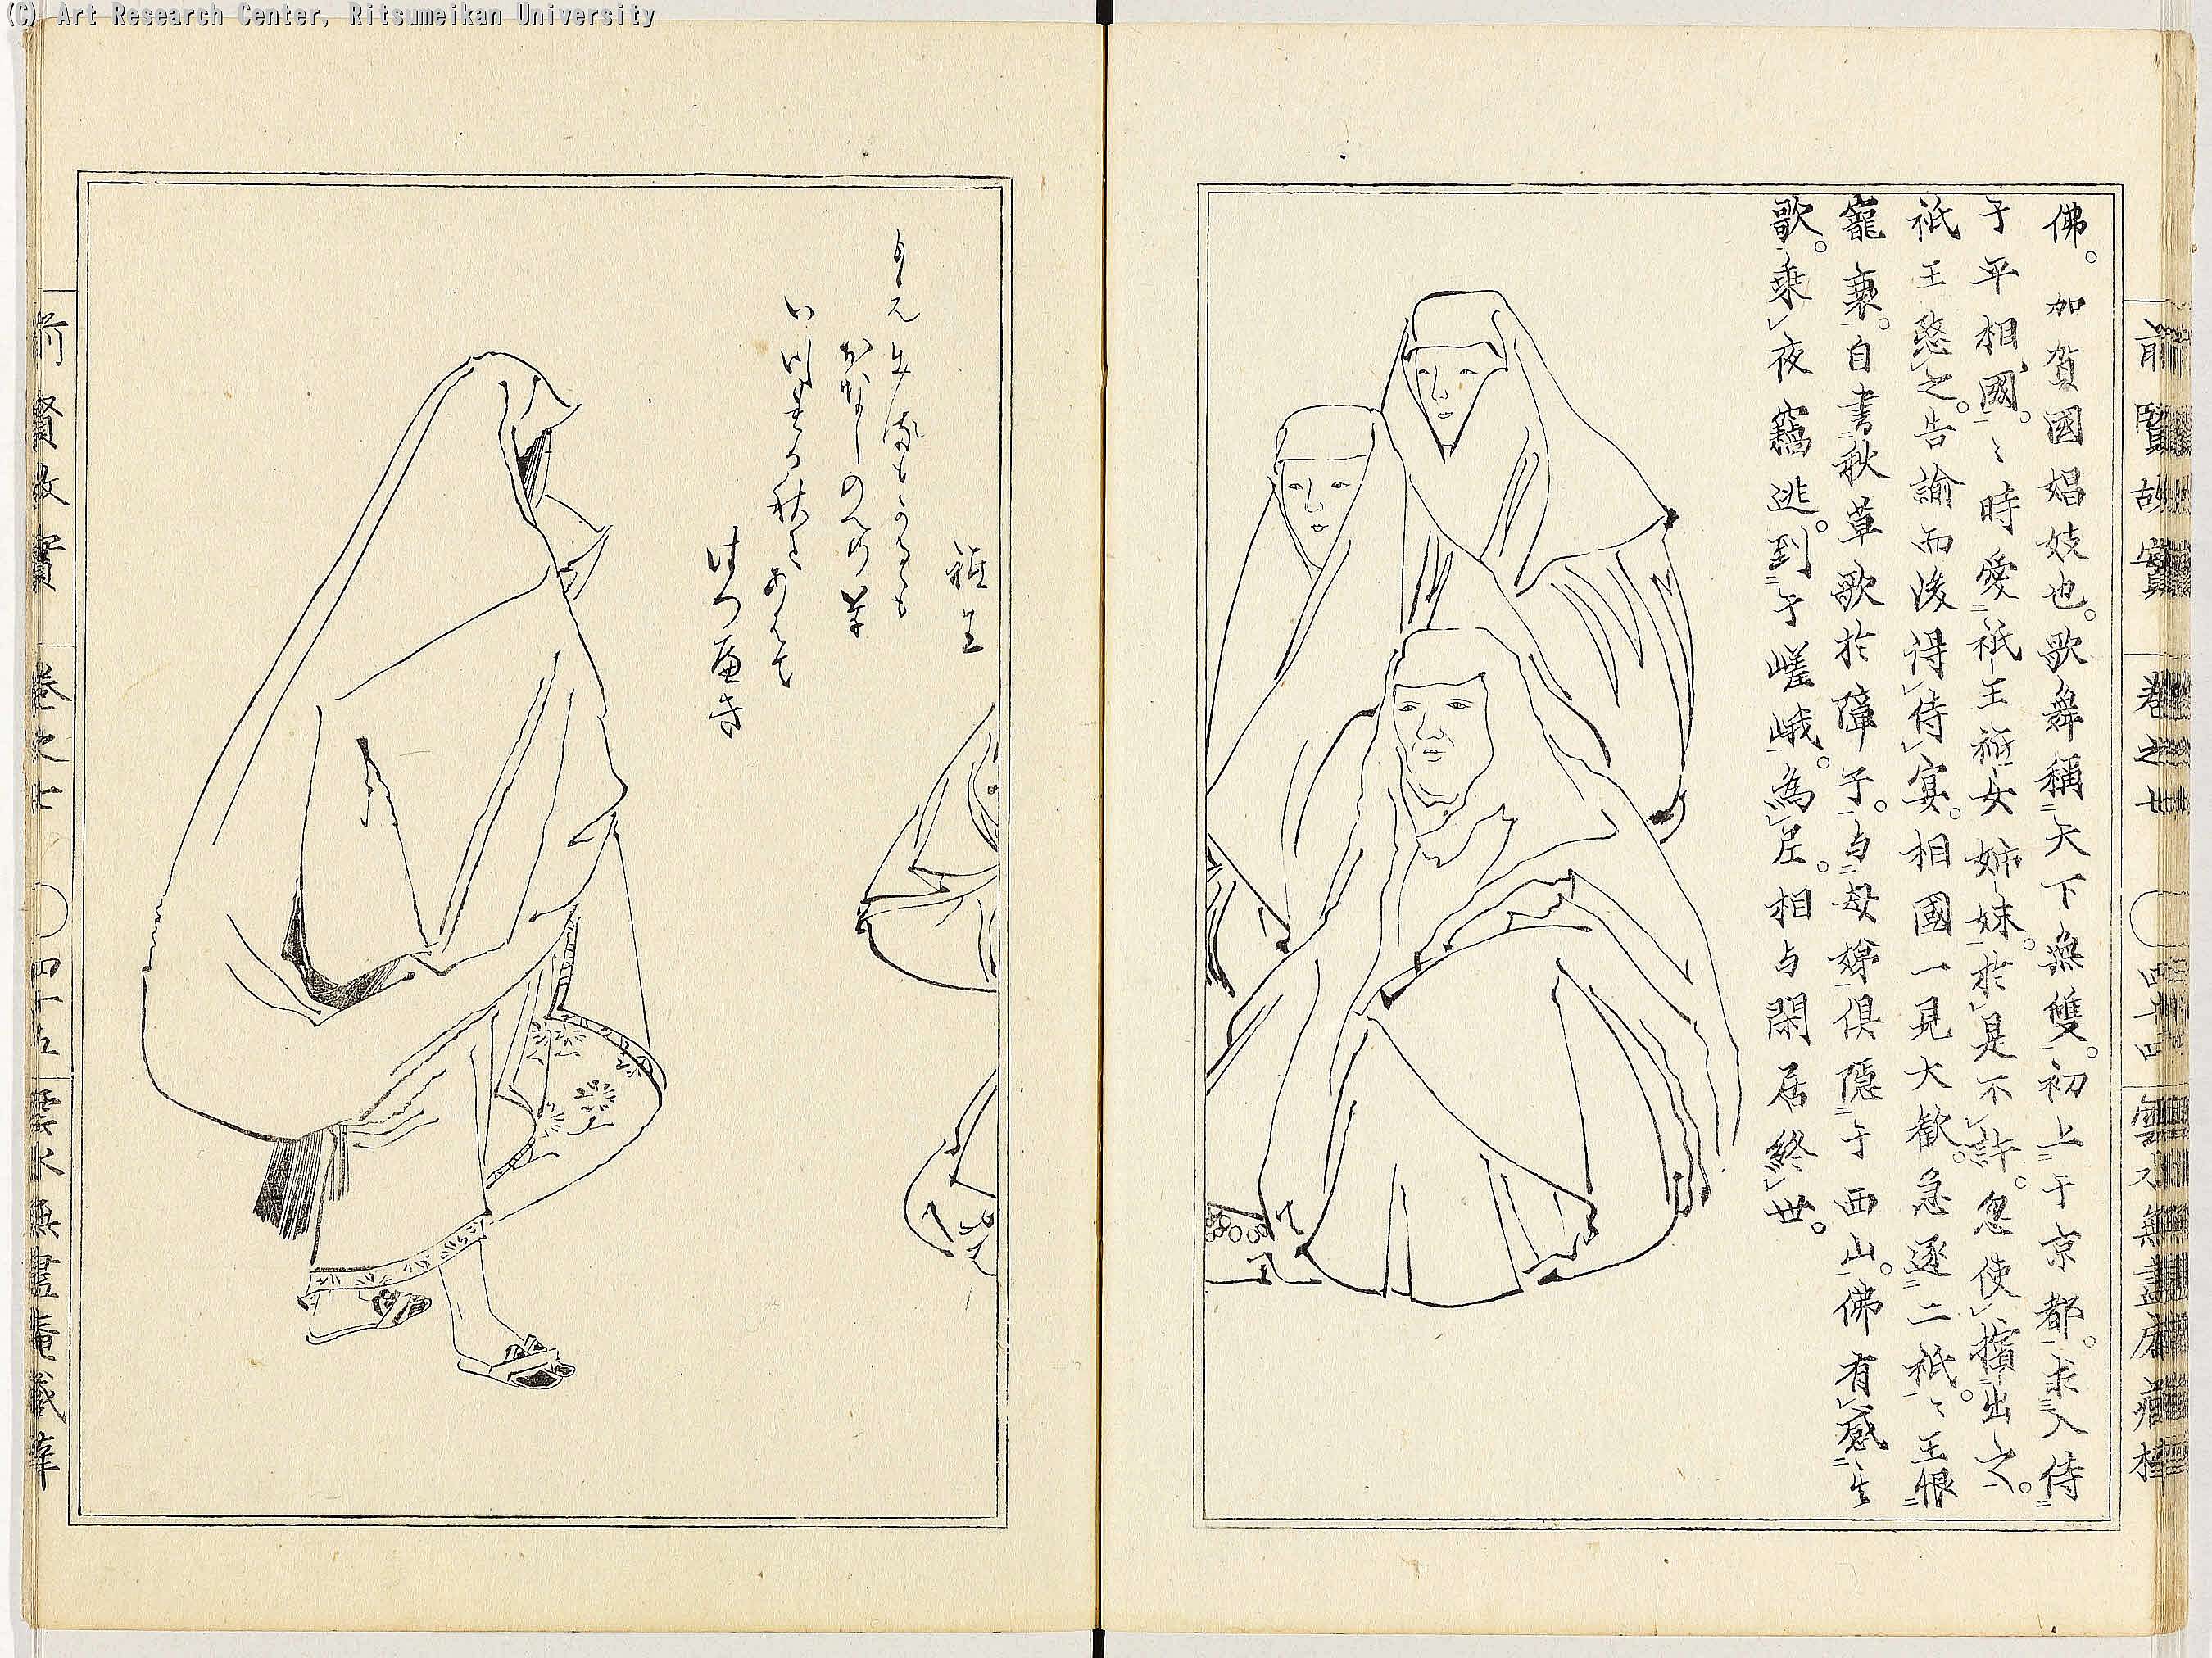 (C) Art Research Center, Ritsumeikan University
前賢故實 卷之七 四十四 雲水無盡庵藏梓
佛。加賀國娼妓也。歌舞稱天下無雙。初上于京都。求入侍
于平相國。〻時愛祇王祇女姉妹。於是不許。忽使擯出之。
祇王愍之。告諭而後得侍宴。相國一見大歓。急逐二祇。〻王恨
寵衰。自書秋草歌於障子。与母娣俱隱于西山。佛有感生
歌。乘夜竊逃。到于嵯峨。為尼。相与閑居終世。
祇王
もえ出るもかるゝも
おなしのへの草
いつれか秋に
あはて
はつへき
前賢故實 卷之七 四十五 雲水無盡庵藏梓